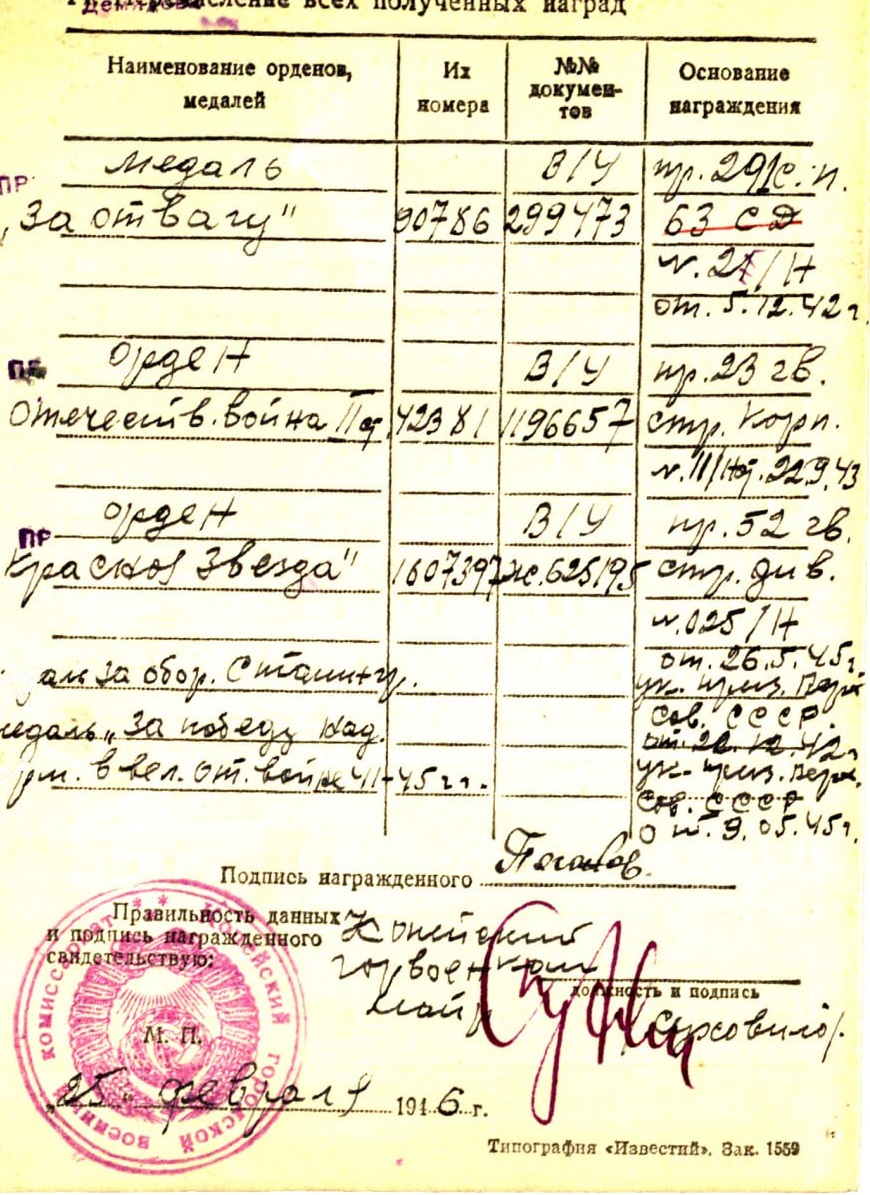 Перечисление всех полученных наград
Наименование орденов, медалей Их номера №№ документов Основание награждения
Медаль В/У пр. 29/с.п.
ПР.
„За отвагу" 90786 299473 63 СД
N. 21/Н
от. 5.12.42 г.
Орден В/У пр. 23 гв.
Отечеств. война II ст. 42381 1196657 стр. корп.
N. 11/Н от. 22.9.43
Орден В/У пр. 52 гв.
ПР
Красноя Звезда" 1607397 Ж.625195 стр. див.
N. 025/Н
от. 26.5.45 г.
за обор. Сталингр. ук. през. Верх
Сов. СССР.
медаль „За победу над от. 22.12.42 г
в вел. от. войне 41-45 г г. ук. през. Верх.
Сов. СССР
От. 9.05.45 г.
Подпись награжденного
Правильность данных
и подпись награжденного
свидетельствую:
Копейский
горвоенком
майор
должность и подпись
КОПЕЙСКИЙ ГОРОДСКОЙ ВОЕННЫЙ КОМИССАРИАТ
М. П.
„25" февраля 1946 г.
Типография «Известий». Зак. 1559